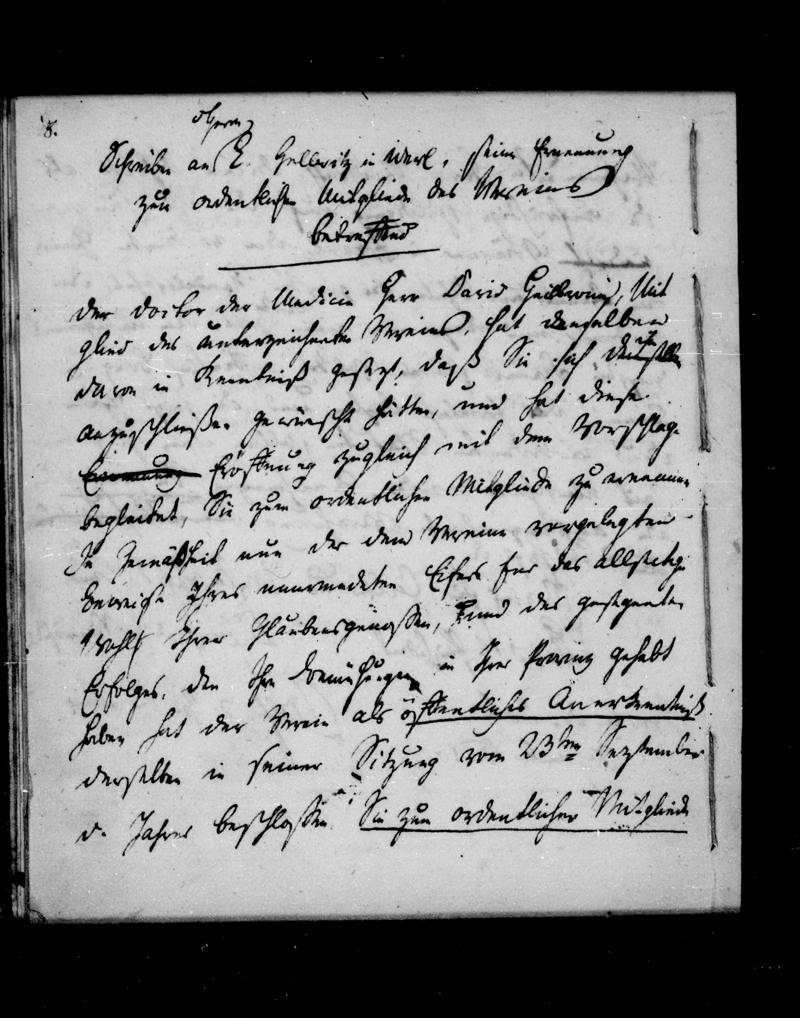 8.
Schreiben an E. Gellwitz in Werl, seine Ernennung
zum ordentlichen Mitgliede des Vereins
betreffend
Der Doctor der Medicin Herr David Heilbronn, Mit
glied des unterzeichneten Vereins, hat denselben
davon in Kenntniß gesetzt, daß Sie sich
anzuschließen gewünscht hätten, und hat diese
Eröffnung zugleich mit dem Vorschlage
begleitet, Sie zum ordentlichen Mitgliede zu ernennen
In Gemäßheit nun der dem Vereine vorgelegten
Beweise Ihres unermüdeten Eifers für das allseitige
Wohl Ihrer Glaubensgenossen, und des gesegneten
Erfolges, den Ihre Bemühungen in Ihrer Provinz gehabt
haben hat der Verein als öffentliches Anerkenntniß
derselben in seiner Sitzung vom 23ten September
d. Jahres beschlossen Sie zum ordentlichen Mitgliede